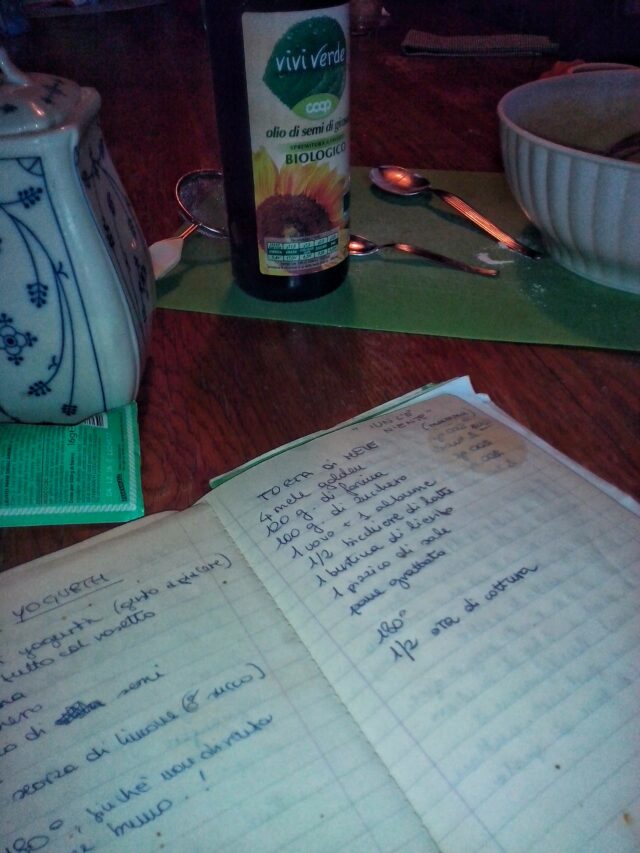 vivi verde
coop
olio di semi di giraso
BIOLOGICO
YOGURTH
yogurth (gusto a piacere)
tutto col vasetto
di semi
scorza di limone (e succo)
180° finché non diventa
bruno..!
"UN C'È
NIENTE"
TORTA DI MELE
4 mele golden
120 g. di farina
100 g. di zucchero
1 uovo + 1 albume
1/2 bicchiere di latte
1 bustina di lievito
1 pizzico di sale
pane grattato
180°
1/2 ora di cottura